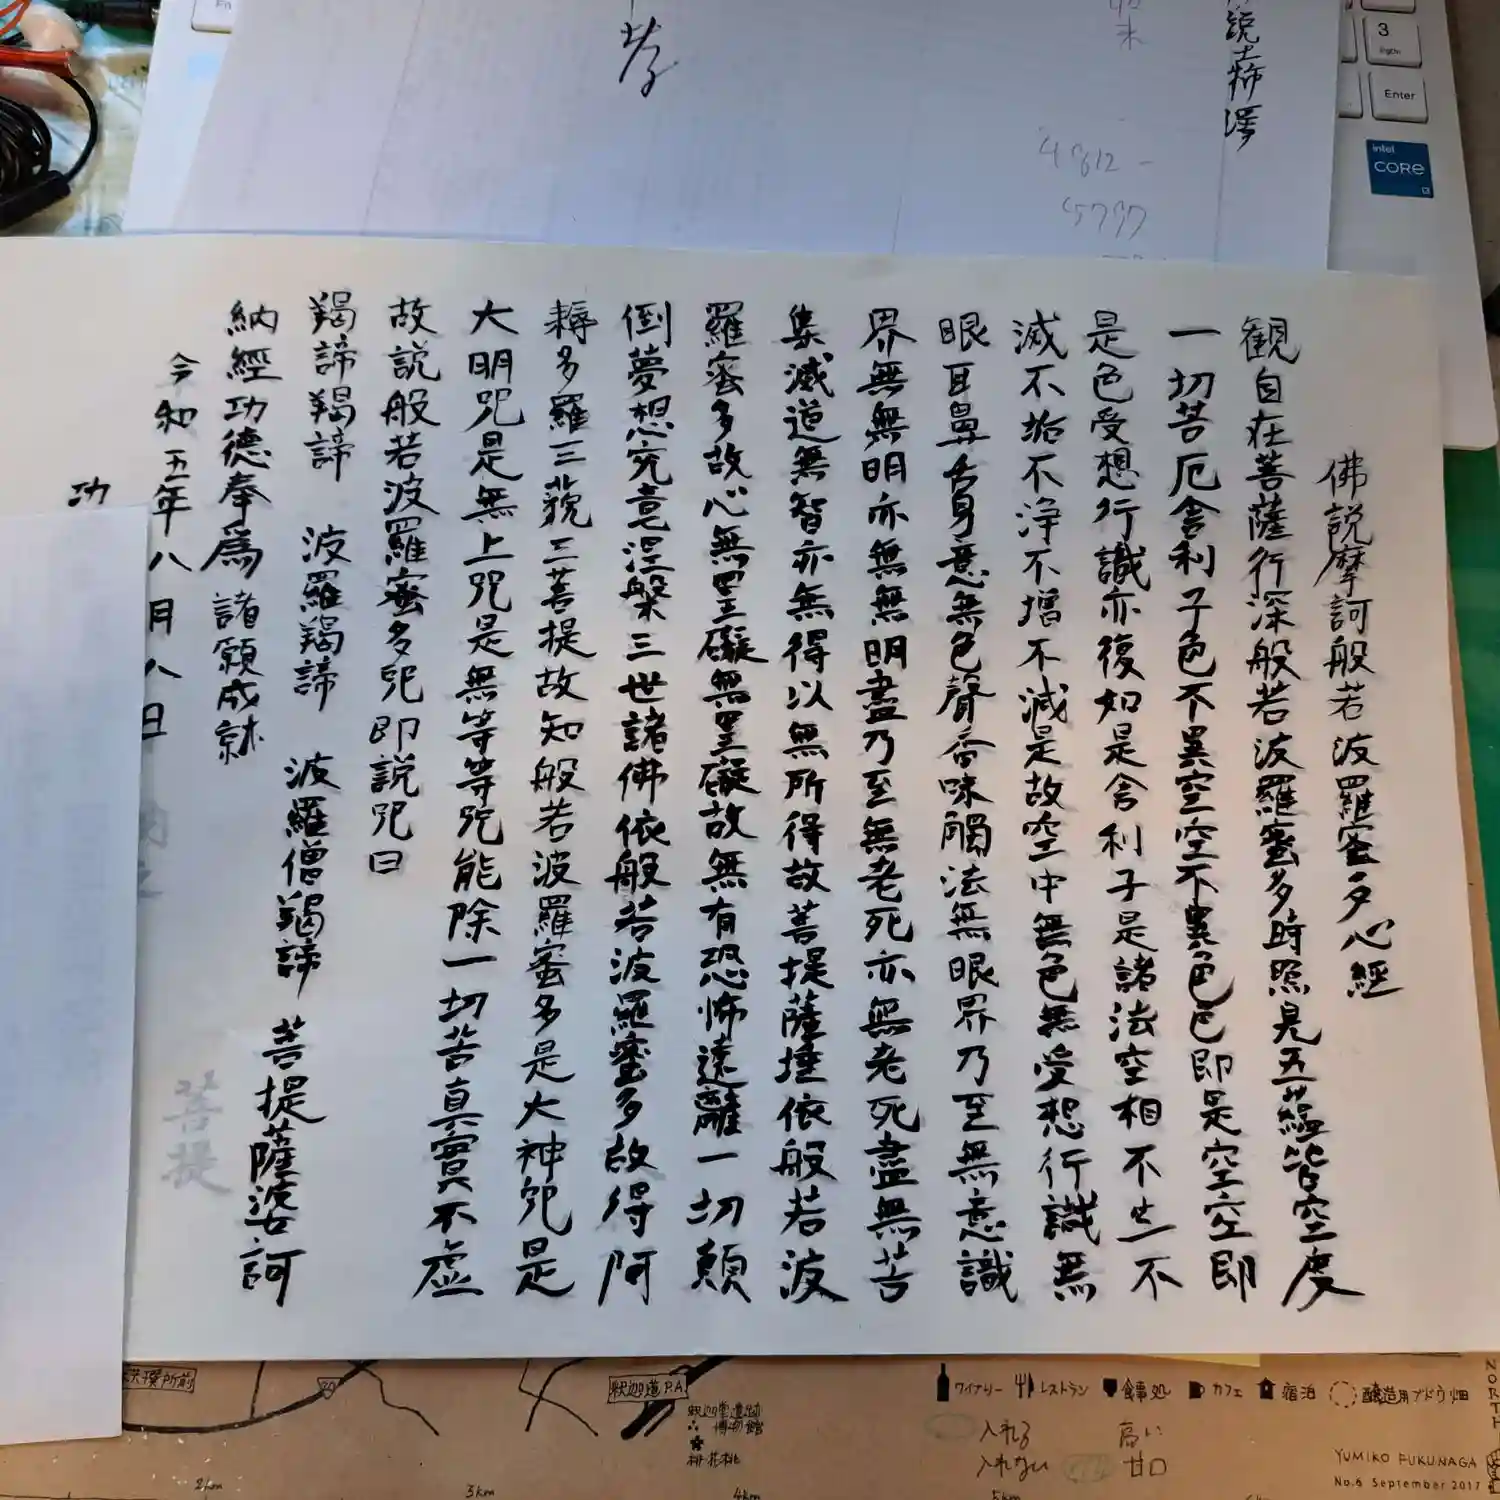 佛説摩訶般若波羅蜜多心經
観自在菩薩行深般若波羅蜜多時照見五蘊皆空度
一切苦厄舎利子色不異空空不異色色即是空空即
是色受想行識亦復如是舎利子是諸法空相不生不
滅不垢不浄不増不減是故空中無色無受想行識無
眼耳鼻舌身意無色聲香味觸法無眼界乃至無意識
界無無明亦無無明盡乃至無老死亦無老死盡無苦
集滅道無智亦無得以無所得故菩提薩埵依般若波
羅蜜多故心無罣礙無罣礙故無有恐怖遠離一切顛
倒夢想究竟涅槃三世諸佛依般若波羅蜜多故得阿
耨多羅三藐三菩提故知般若波羅蜜多是大神咒是
大明咒是無上咒是無等等咒能除一切苦真實不虚
故説般若波羅蜜多咒即説咒曰
羯諦羯諦 波羅羯諦 波羅僧羯諦 菩提薩婆訶
納經功德奉爲 諸願成就
令和五年八月八日
功
菩提
3
PgDn
Enter
intel
CORE
i3
4812-
釈迦堂P.A
釈迦堂遺跡
博物館
ワイナリー レストラン 食事処 カフェ 宿泊 醸造用ブドウ畑
入れる
入れない
高い
甘口
NORTH
YUMIKO FUKUNAGA
No.6 September 2017
20
2km
3km
4km
5km